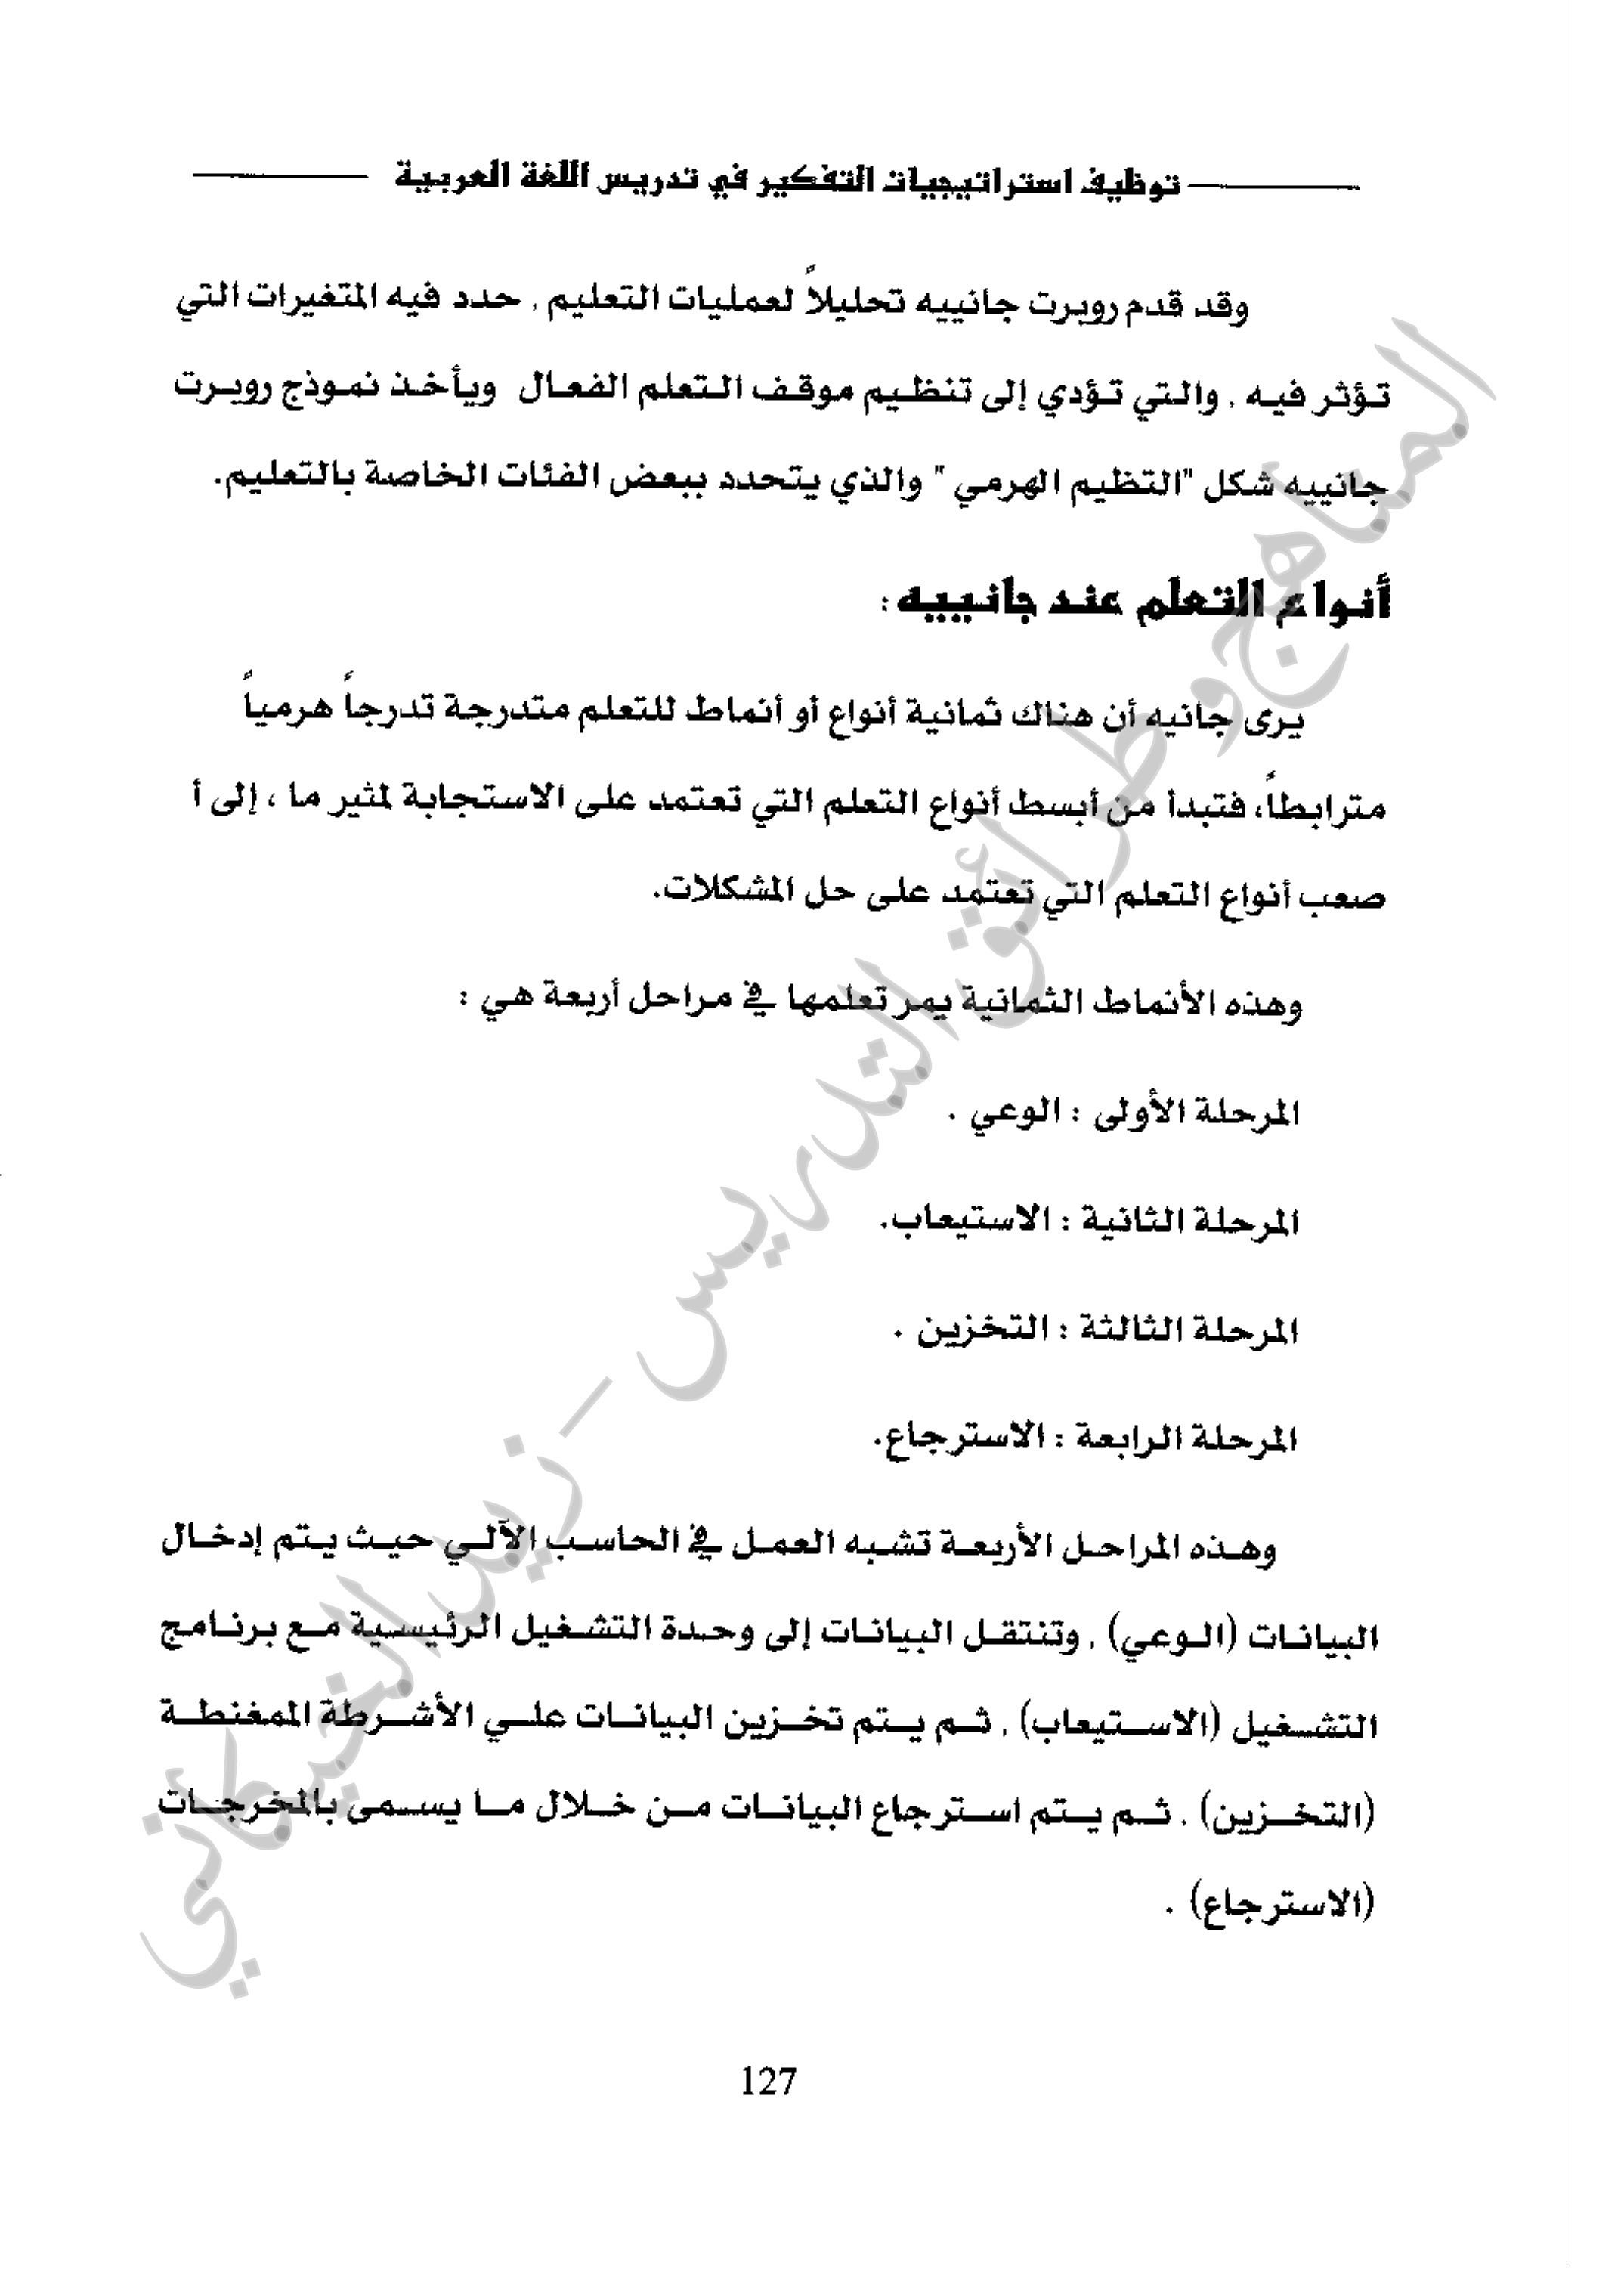 توظيف استراتيجيات التفكير في تدريس اللغة العربية
وقد قدم روبرت جانييه تحليلاً لعمليات التعليم , حدد فيه المتغيرات التي
تؤثر فيه , والتي تؤدي إلى تنظيم موقف التعلم الفعال ويأخذ نموذج روبرت
جانييه شكل "التظيم الهرمي " والذي يتحدد ببعض الفئات الخاصة بالتعليم.
أنواع التعلم عند جانييه :
يرى جانيه أن هناك ثمانية أنواع أو أنماط للتعلم متدرجة تدرجاً هرمياً
مترابطاً، فتبدأ من أبسط أنواع التعلم التي تعتمد على الاستجابة لمثير ما ، إلى أ
صعب أنواع التعلم التي تعتمد على حل المشكلات.
وهذه الأنماط الثمانية يمر تعلمها في مراحل أربعة هي :
المرحلة الأولى : الوعي .
المرحلة الثانية : الاستيعاب.
المرحلة الثالثة : التخزين .
المرحلة الرابعة : الاسترجاع.
وهذه المراحل الأربعة تشبه العمل في الحاسب الآلي حيث يتم إدخال
البيانات (الوعي) , وتنتقل البيانات إلى وحدة التشغيل الرئيسية مع برنامج
التشغيل (الاستيعاب) , ثم يتم تخزين البيانات علي الأشرطة الممغنطة
(التخزين) , ثم يتم استرجاع البيانات من خلال ما يسمى بالمخرجات
(الاسترجاع) .
127
المناهج وطرائق التدريس - زيد الخيكاني